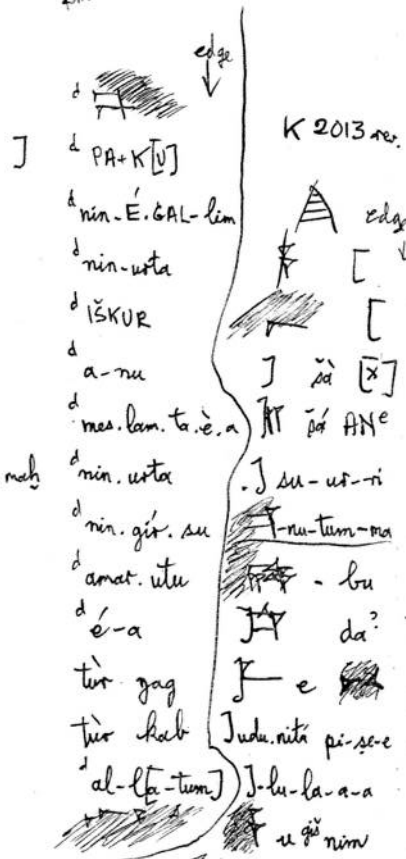 edge
↓
d
] d PA+K[U]
d nin-É.GAL-lim
d nin-urta
d IŠKUR
d a-nu
d mes.lam.ta.è.a
maḫ d nin.urta
d nin.gír.su
d amar.utu
d é-a
tùr zag
tùr kab
d al-l[a-tum]
K 2013 rev.
edge
↓
[
[
] šà [x]
] šá ANe
.] su-ur-ri
-nu-tum-ma
- bu
] da?
] e
] udu.nitá pi-ṣe-e
]-lu-la-a-a
u giš nim